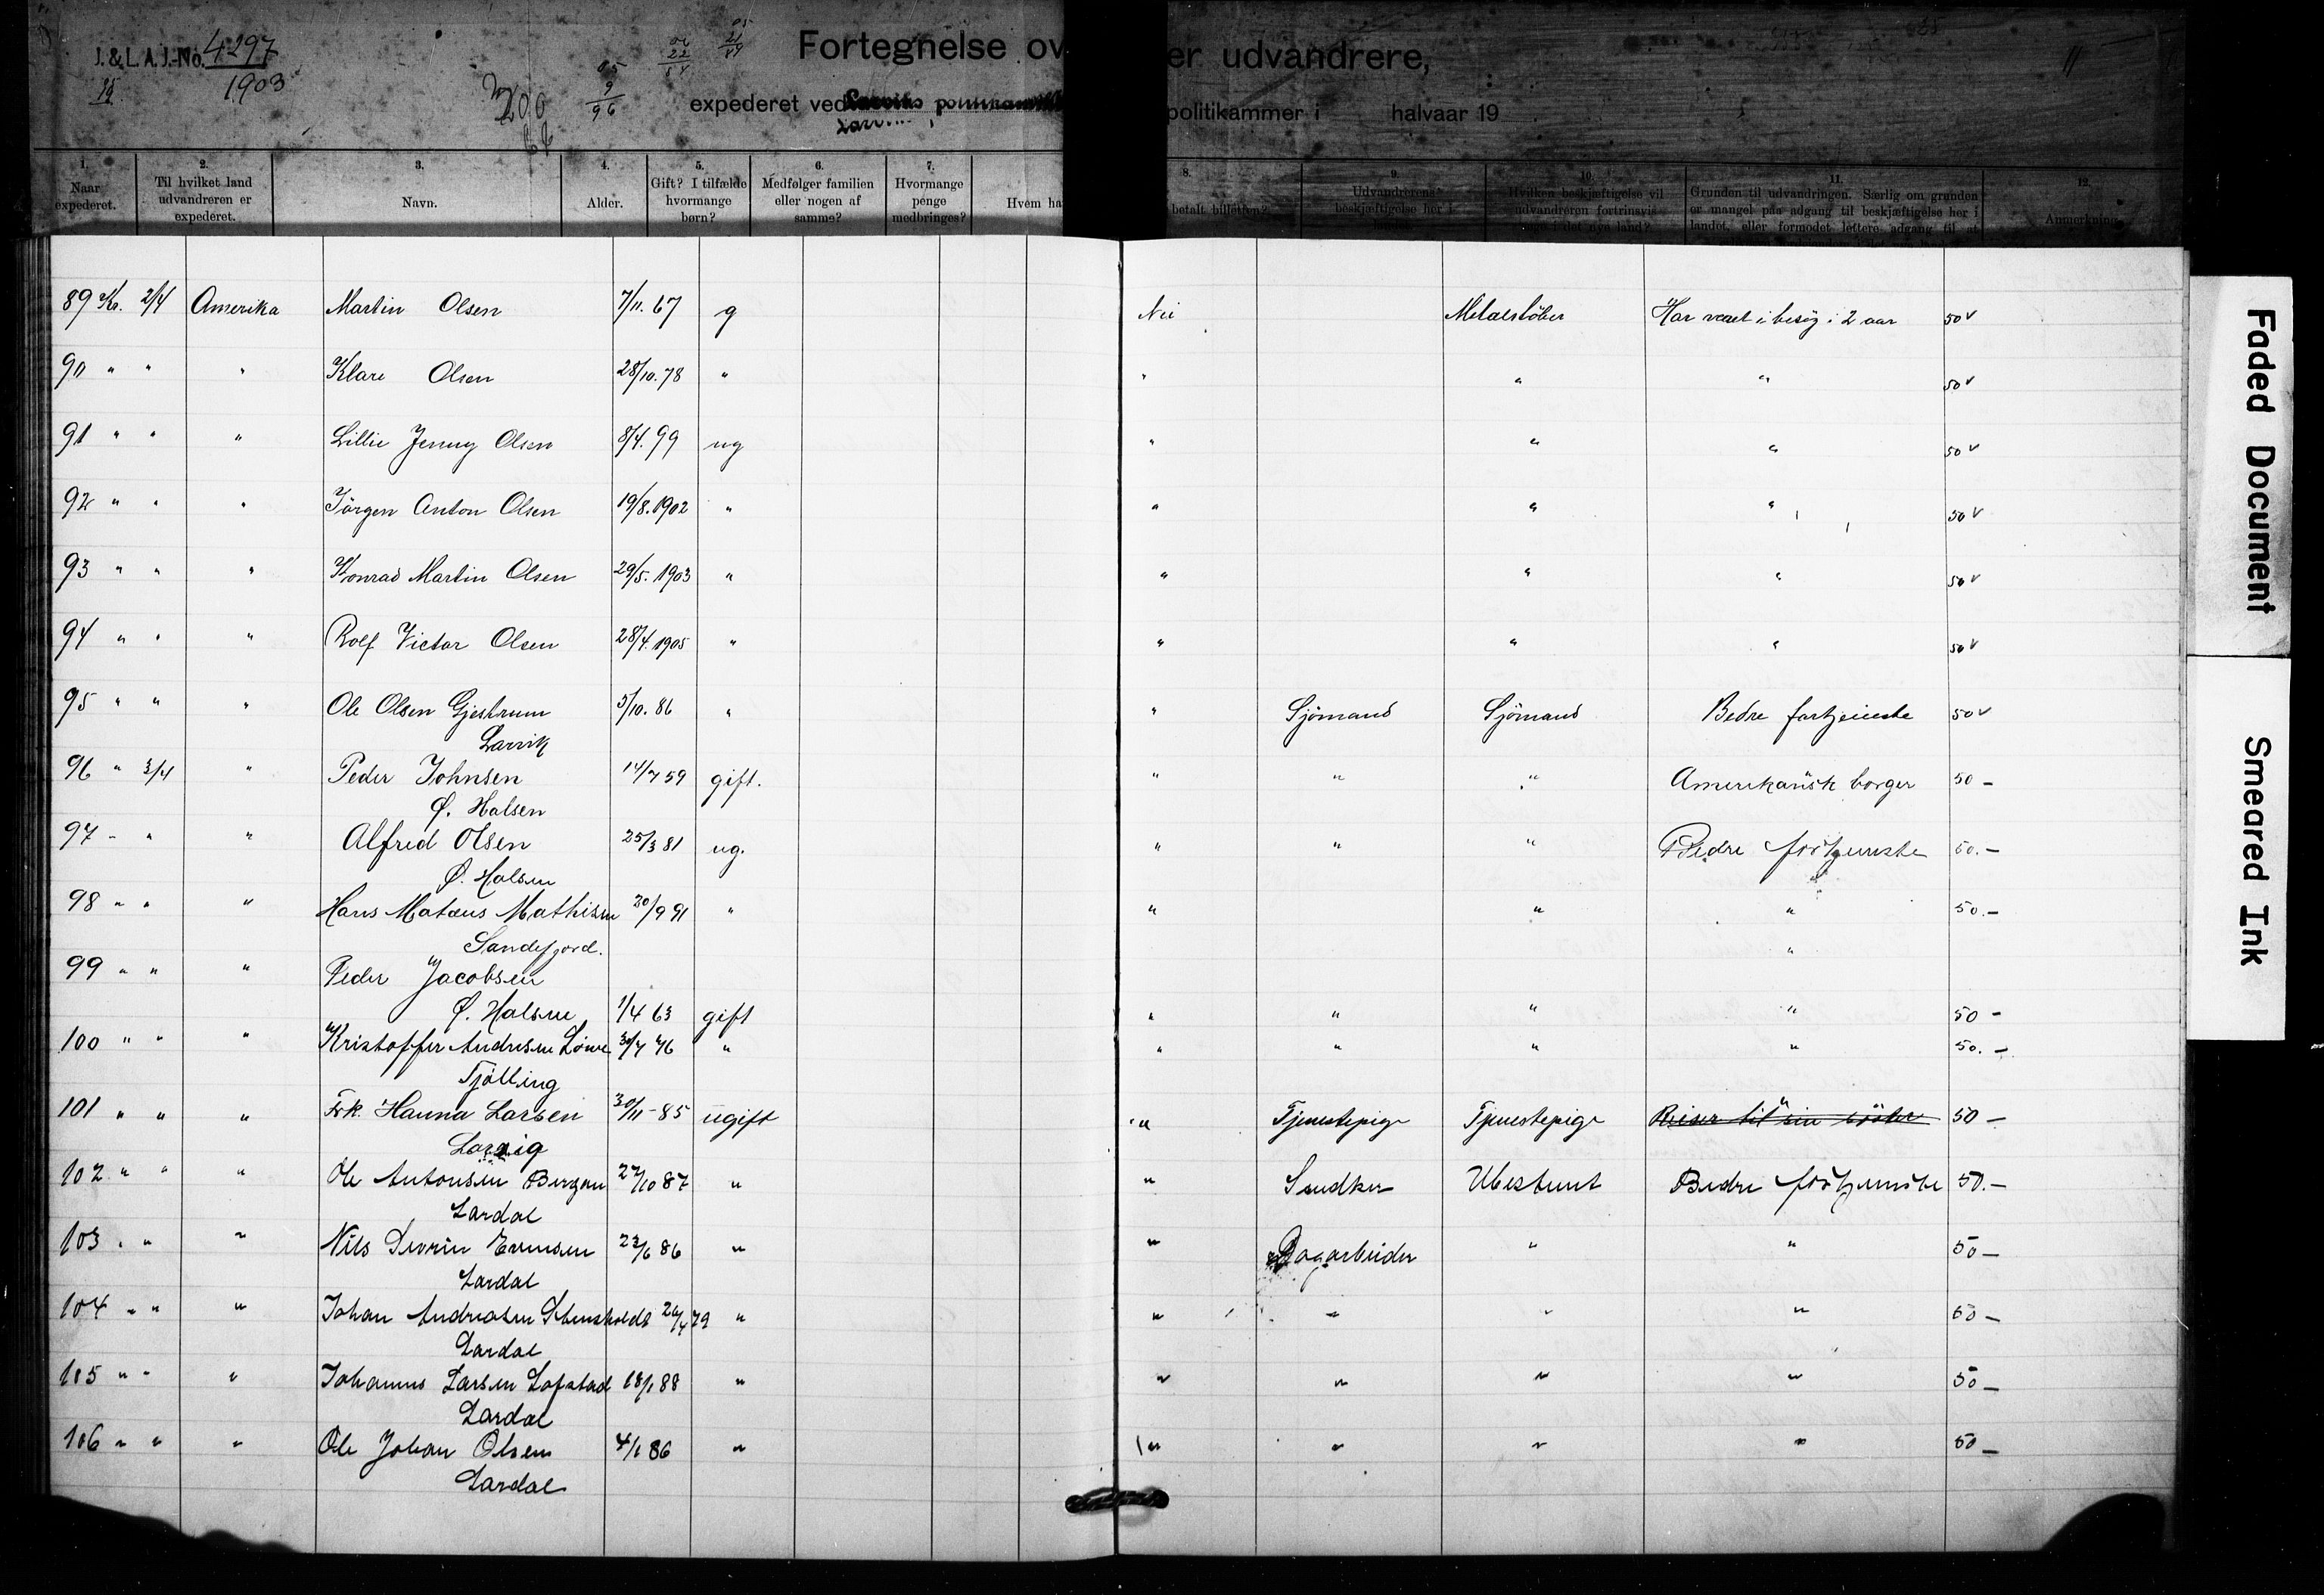 J. & L. A. J.-No. 4297
1903
Fortegnelse ov er udvandrere,
200
expederet ved politikammer i halvaar 19
1. Naar expederet.
2. Til hvilket land udvandreren er expederet.
3. Navn.
4. Alder.
5. Gift? I tilfælde hvormange børn?
6. Medfølger familien eller nogen af samme?
7. Hvormange penge medbringes?
Hvem ha
8. betalt billetten?
9. Udvandrerens beskjæftigelse her i landet.
10. Hvilken beskjæftigelse vil udvandreren fortrinsvis søge i det nye land?
11. Grunden til udvandringen. Særlig om grunden er mangel paa adgang til beskjæftigelse her i landet, eller formodet lettere adgang til at
12. Anmerkning
89 Kr. 2/4 Amerika Martin Olsen 7/11. 67 g Nei Metalstöber Har været i besøg i 2 aar 50 v
90 " " " Klare Olsen 28/10. 78 " " " " 50 v
91 " " " Lillie Jenny Olsen 8/4. 99 ug " " " 50 v
92 " " " Jörgen Anton Olsen 19/8. 1902 " " " " 50 v
93 " " " Konrad Martin Olsen 29/5. 1903 " " " " 50 v
94 " " " Rolf Victor Olsen 28/4. 1905 " " " " 50 v
95 " " " Ole Olsen Gjestrum 5/10. 86 " " Sjömand Sjömand Bedre fortjeneste 50 v
Larvik
96 " 3/4 " Peder Johnsen 14/7 59 gift. " " " Amerikansk borger 50 -
Ø. Halsen
97 - " " Alfred Olsen 25/3 81 ug. " " " Bedre fortjeneste 50. -
Ø. Halsen
98 " " " Hans Matæus Mathisen 20/9 91 " " " " 50. -
Sandefjord.
99 " " " Peder Jacobsen "
Ø. Halsen 1/4 63 gift " " " " 50 -
100 " " " Kristoffer Andresen Löwe 30/7 76 " " " " " 50. -
Tjölling
101 " " " Frk. Hanna Larsen 30/11 - 85 ugift " Tjenestepige Tjenestepige Reiser til sin søster 50 -
Larvig
102 " " " Ole Antonsen Bergan 27/10 87 " " Snedker Ubestemt Bedre fortjeneste 50. -
Lardal
103 " " " Nils Severin Evensen 23/6 86 " " Dagarbeider " " 50 -
Lardal
104 " " " Johan Andreasen Stensholdt 26/4 79 " " " " " 50 -
Lardal
105 " " " Johannes Larsen Lofstad 18/1 88 " " " " " 50 -
Lardal
106 " " " Ole Johan Olsen 4/1 86 " " " " " 50 -
Lardal
Faded Document
Smeared Ink